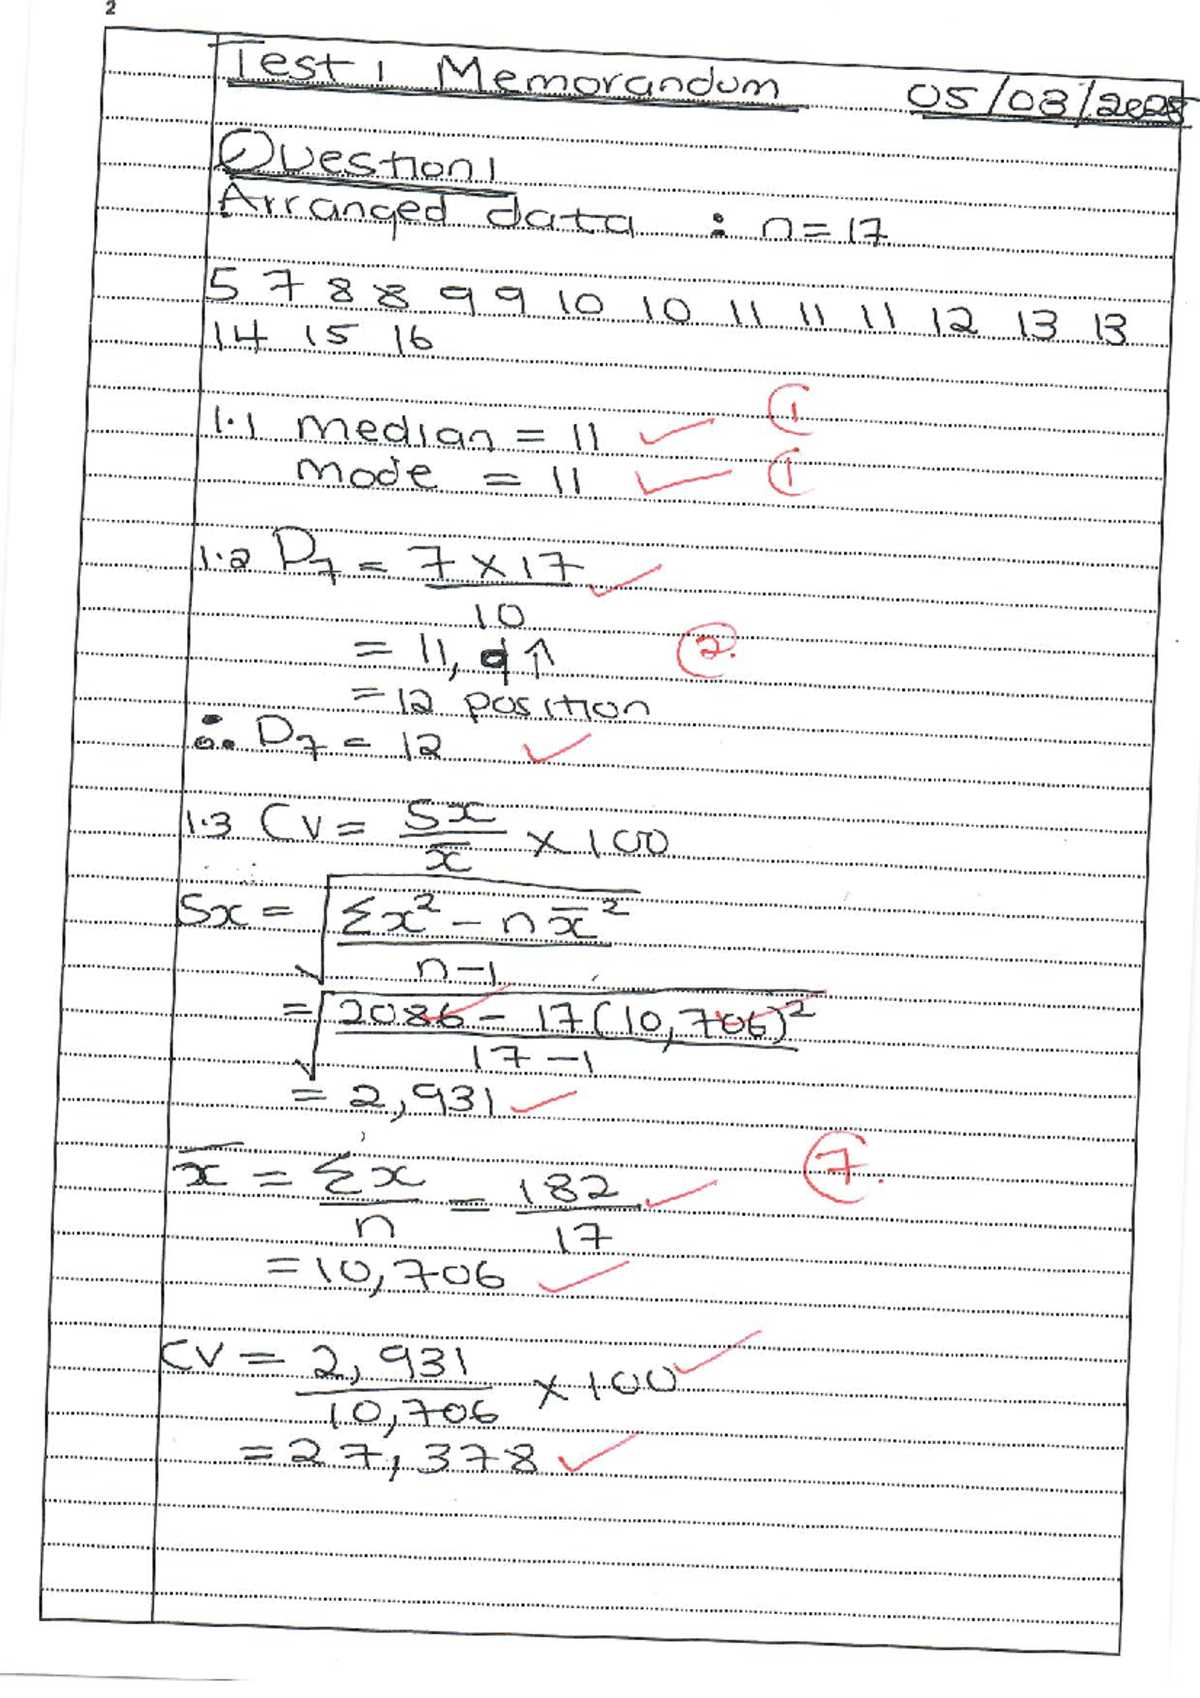 2
Test 1 Memorandum 05/03/2025
Question 1
Arranged data : n = 17
5 7 8 8 9 9 10 10 11 11 11 12 13 13
14 15 16
1.1 median = 11 ✓ ①
mode = 11 ✓ ①
1.2 D₇ = 7 × 17 ✓
10
= 11,9 ↑ ②.
= 12 position
∴ D₇ = 12 ✓
1.3 CV = Sx/x̄ × 100
Sx = √(Σx² − nx̄²
n−1
= √(2086 ✓ − 17(10,706)² ✓
17 − 1
= 2,931 ✓
x̄ = Σx/n = 182/17 ✓ ⑦.
= 10,706 ✓
CV = 2,931/10,706 × 100 ✓
= 27,378 ✓